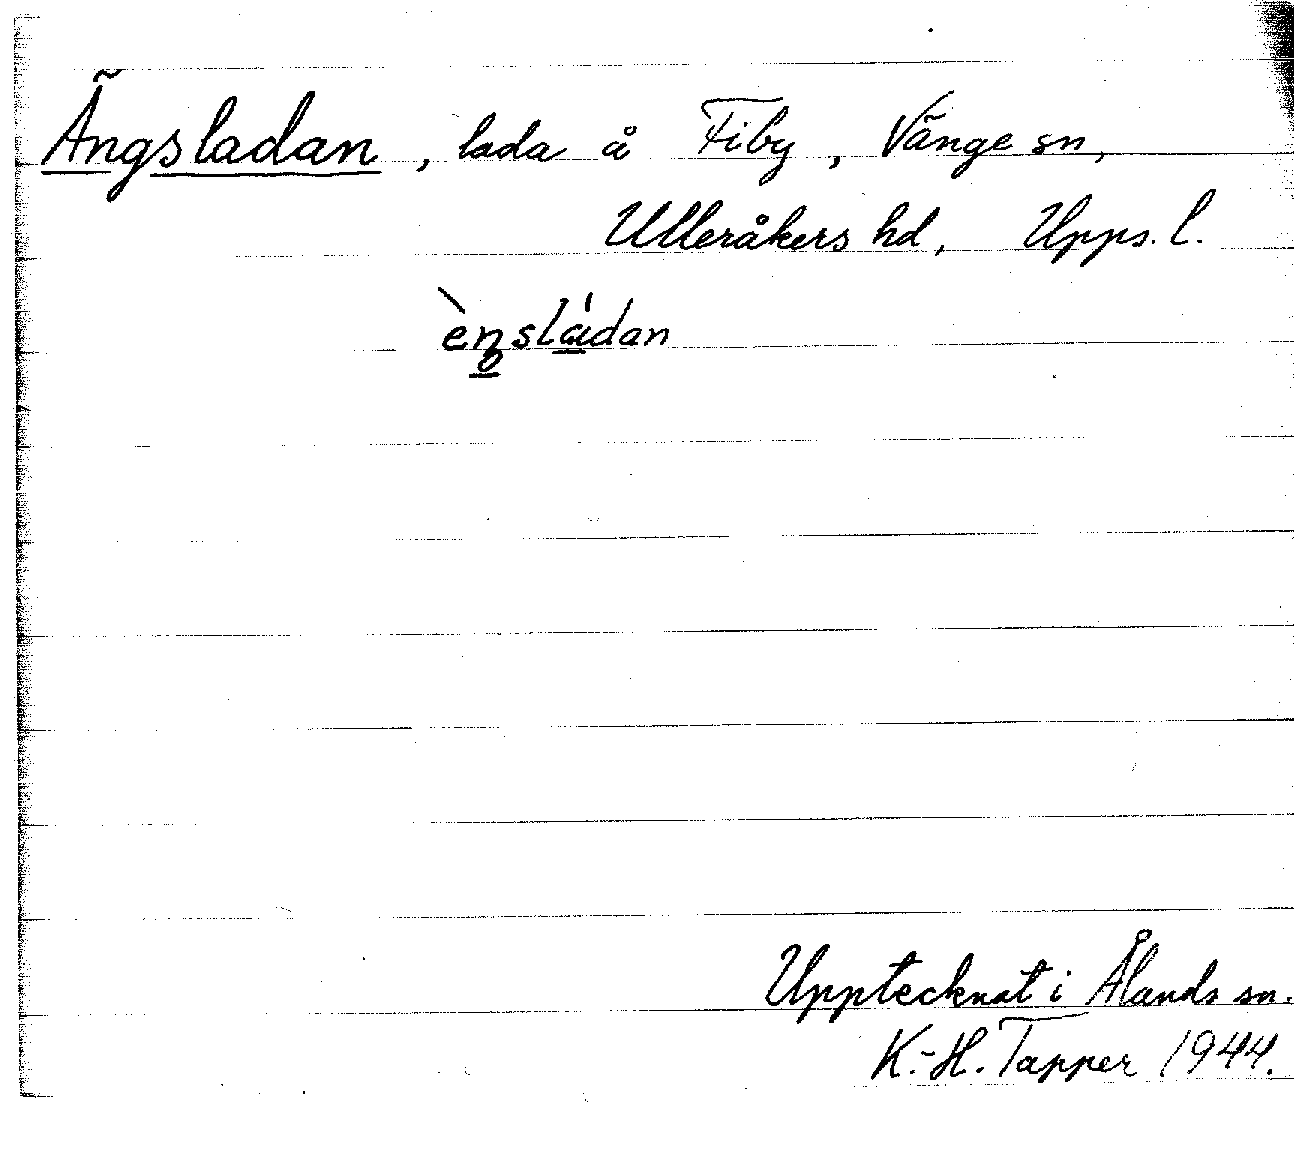 Ängsladan, lada å Fiby, Vänge sn,
Ulleråkers hd, Upps. l.
Upptecknat i Ålands sn.
K.-H. Tapper 1944.